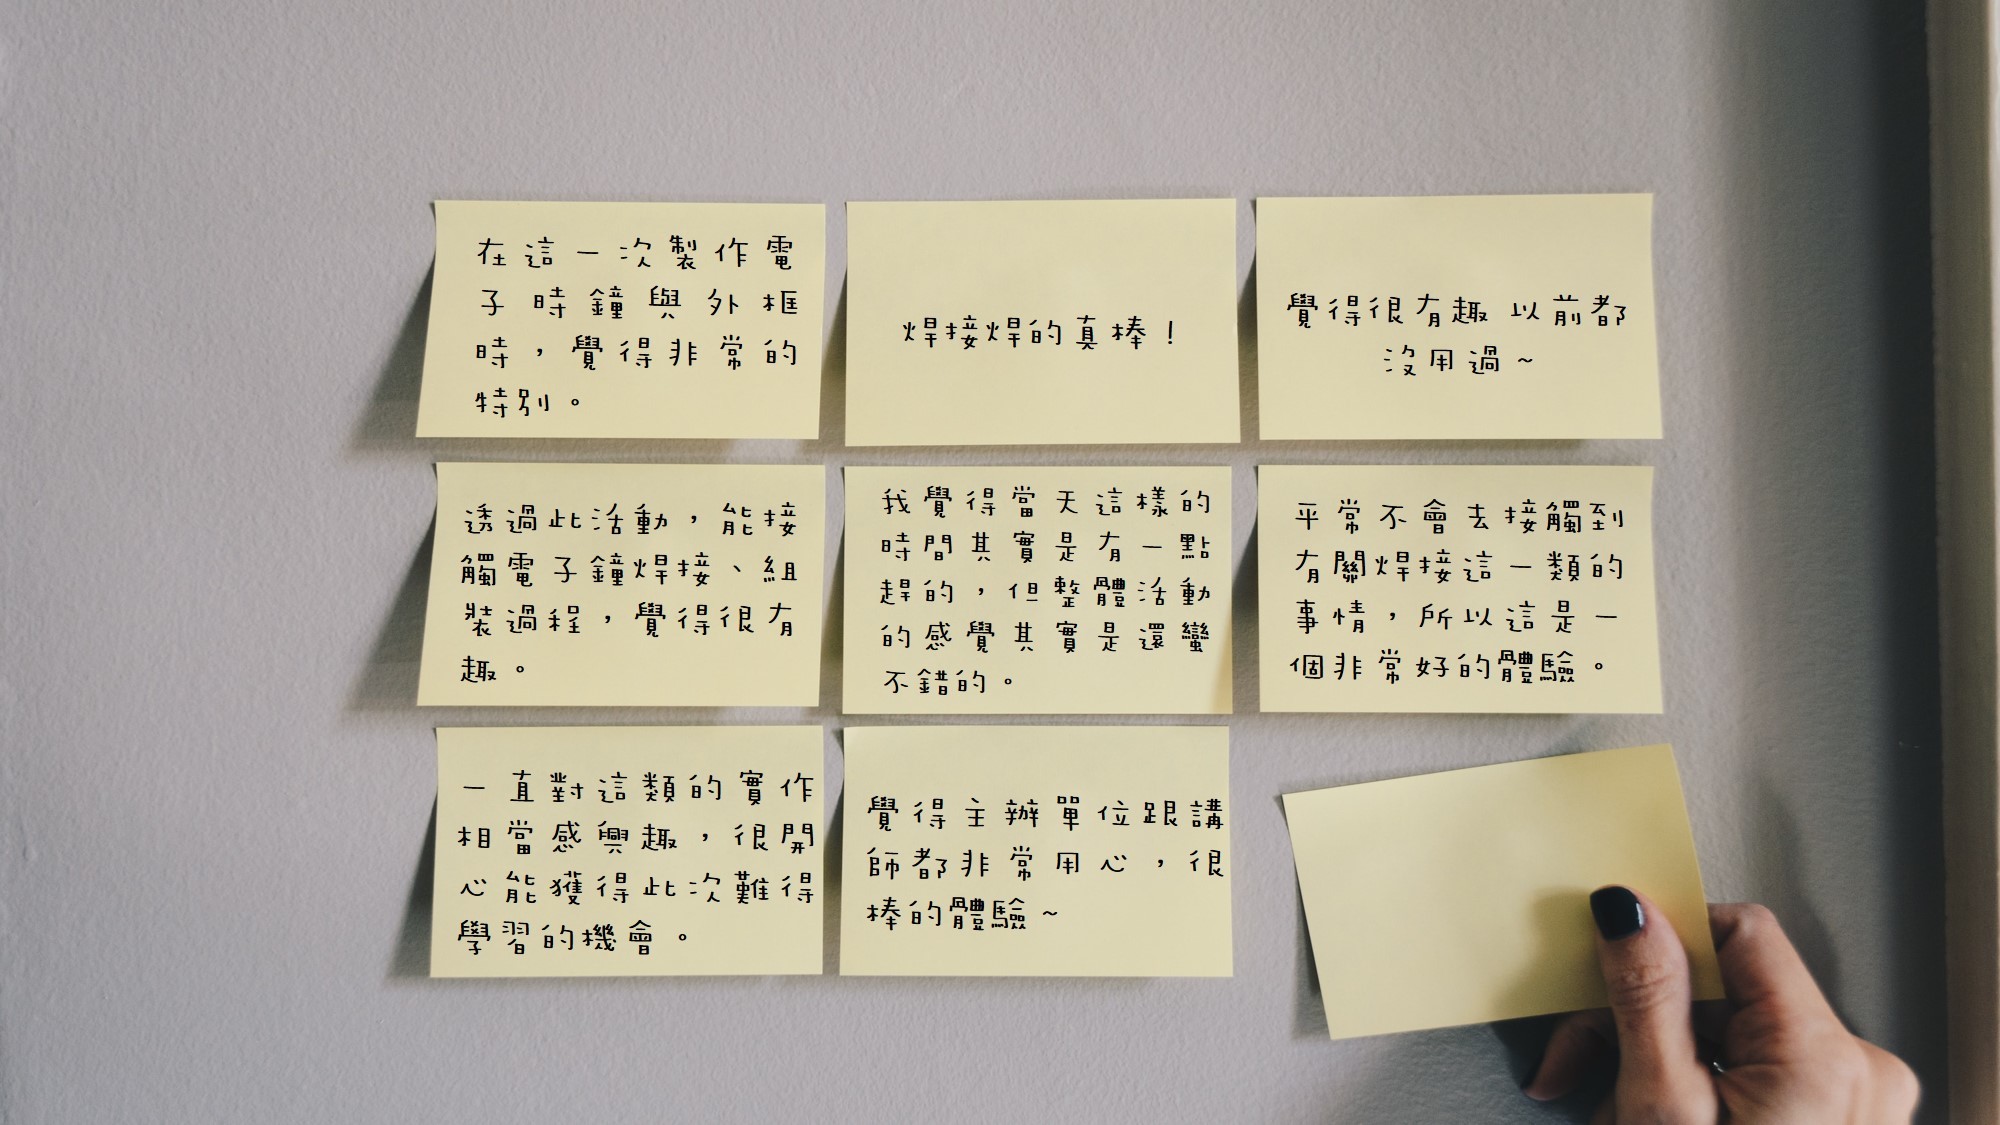 在這一次製作電
子時鐘與外框
時，覺得非常的
特別。
焊接焊的真棒！
覺得很有趣 以前都
沒用過~
透過此活動，能接
觸電子鐘焊接、組
裝過程，覺得很有
趣。
我覺得當天這樣的
時間其實是有一點
趕的，但整體活動
的感覺其實是還蠻
不錯的。
平常不會去接觸到
有關焊接這一類的
事情，所以這是一
個非常好的體驗。
一直對這類的實作
相當感興趣，很開
心能獲得此次難得
學習的機會。
覺得主辦單位跟講
師都非常用心，很
棒的體驗~